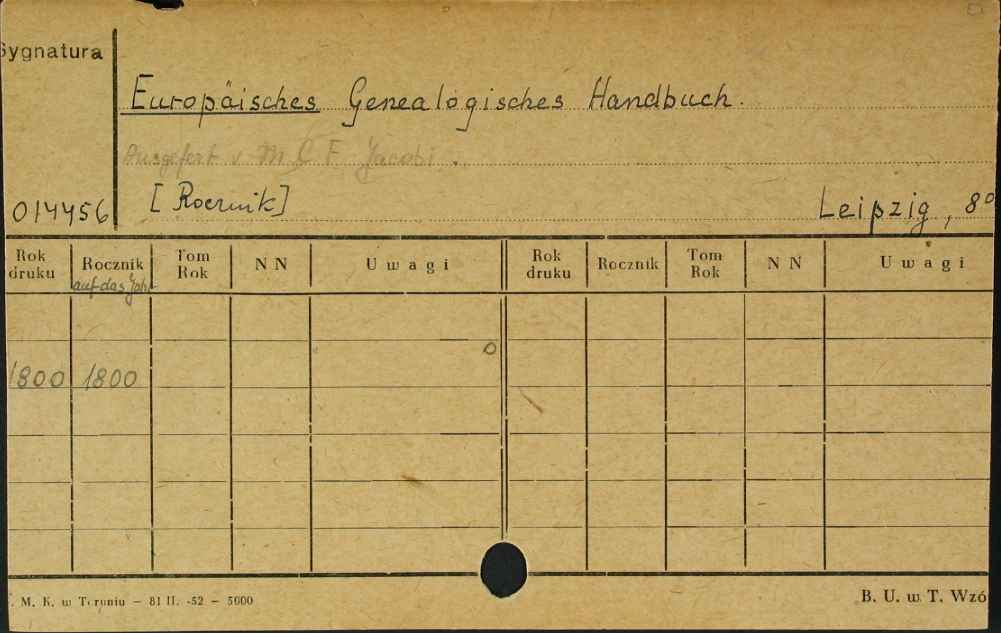 Sygnatura
Europäisches Genealogisches Handbuch.
Ausgefert v. M C F Jacobi.
014456 [Rocznik] Leipzig, 8º
Rok druku Rocznik Tom Rok NN Uwagi Rok druku Rocznik Tom Rok NN Uwagi
auf das Jah
1800 1800
. M. K. w Toruniu — 81 II. -52 — 5000 B. U. w T. Wzó